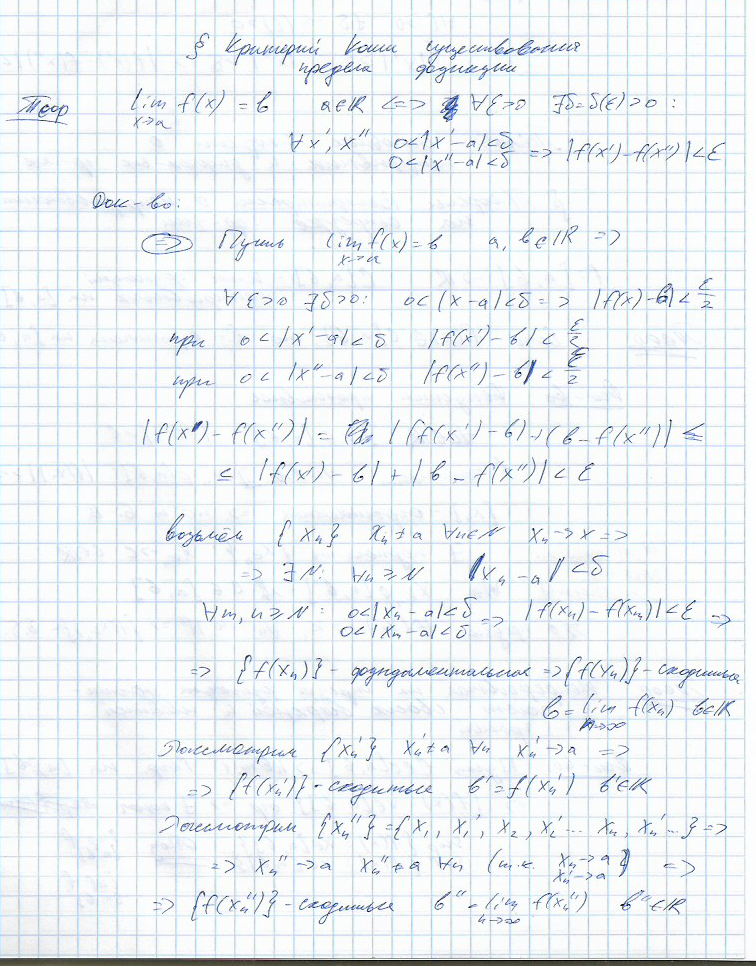 § Критерий Коши существования
предела функции
Теор lim f(x) = b a∈ℝ <=> ∀ε>0 ∃δ=δ(ε)>0 :
x→a
∀x', x'' 0<|x'-a|<δ
0<|x''-a|<δ => |f(x')-f(x'')|<ε
Док-во:
=> Пусть lim f(x)=b a, b∈ℝ =>
x→a
∀ε>0 ∃δ>0: 0<|x-a|<δ => |f(x)-b|<ε/2
при 0<|x'-a|<δ |f(x')-b|<ε/2
при 0<|x''-a|<δ |f(x'')-b|<ε/2
|f(x')-f(x'')| = |(f(x')-b)+(b-f(x''))| ≤
≤ |f(x')-b|+|b-f(x'')|<ε
возьмём {xn} xn≠a ∀n∈N xn→x =>
=> ∃N: ∀n≥N |xn-a|<δ
∀m,n≥N: 0<|xn-a|<δ
0<|xm-a|<δ => |f(xn)-f(xm)|<ε =>
=> {f(xn)} - фундаментальная => {f(xn)} - сходится
b=lim f(xn) b∈ℝ
n→∞
Рассмотрим {xn'} xn'≠a ∀n xn'→a =>
=> {f(xn')} - сходится b'=f(xn') b'∈ℝ
Рассмотрим {xn''}={x1, x1', x2, x2'... xn, xn'...} =>
=> xn''→a xn''≠a ∀n (т.к. xn→a
xn'→a) =>
=> {f(xn'')} - сходится b''=lim f(xn'') b''∈ℝ
n→∞